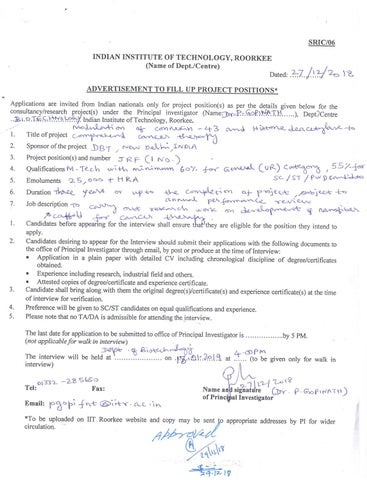 SRIC/06
INDIAN INSTITUTE OF TECHNOLOGY, ROORKEE
(Name of Dept./Centre)
Dated: 27/12/2018
ADVERTISEMENT TO FILL UP PROJECT POSITIONS*
Applications are invited from Indian nationals only for project position(s) as per the details given below for the
consultancy/research project(s) under the Principal Investigator (Name: Dr. P. GOPINATH......), Dept./Centre
BIOTECHNOLOGY Indian Institute of Technology, Roorkee.
Modulation of connexin-43 and histone deacetylase to
1. Title of project comprehend cancer therapy
2. Sponsor of the project DBT, New Delhi, INDIA
3. Project position(s) and number JRF (1 No.)
4. Qualifications M-Tech with minimum 60% for General (UR) Category, 55% for
SC/ST/PwD candidates
5. Emoluments 25,000 + HRA
6. Duration three years or upto the completion of project, subject to
annual performance review
7. Job description to carry out research work on development of nanofiber
scaffold for cancer therapy.
1. Candidates before appearing for the interview shall ensure that they are eligible for the position they intend to
apply.
2. Candidates desiring to appear for the Interview should submit their applications with the following documents to
the office of Principal Investigator through email, by post or produce at the time of Interview:
• Application in a plain paper with detailed CV including chronological discipline of degree/certificates
obtained.
• Experience including research, industrial field and others.
• Attested copies of degree/certificate and experience certificate.
3. Candidate shall bring along with them the original degree(s)/certificate(s) and experience certificate(s) at the time
of interview for verification.
4. Preference will be given to SC/ST candidates on equal qualifications and experience.
5. Please note that no TA/DA is admissible for attending the interview.
The last date for application to be submitted to office of Principal Investigator is ............by 5 PM.
(not applicable for walk in interview)
Dept. of Biotechnology
The interview will be held at .................. on 08.01.2019 at 4:00PM (to be given only for walk in
interview)
Tel: 01332-285650 Fax:
27/12/2018
Name and signature (Dr. P. GOPINATH)
of Principal Investigator
Email: pgopifnt@iitr.ac.in
*To be uploaded on IIT Roorkee website and copy may be sent to appropriate addresses by PI for wider
circulation.
Approved